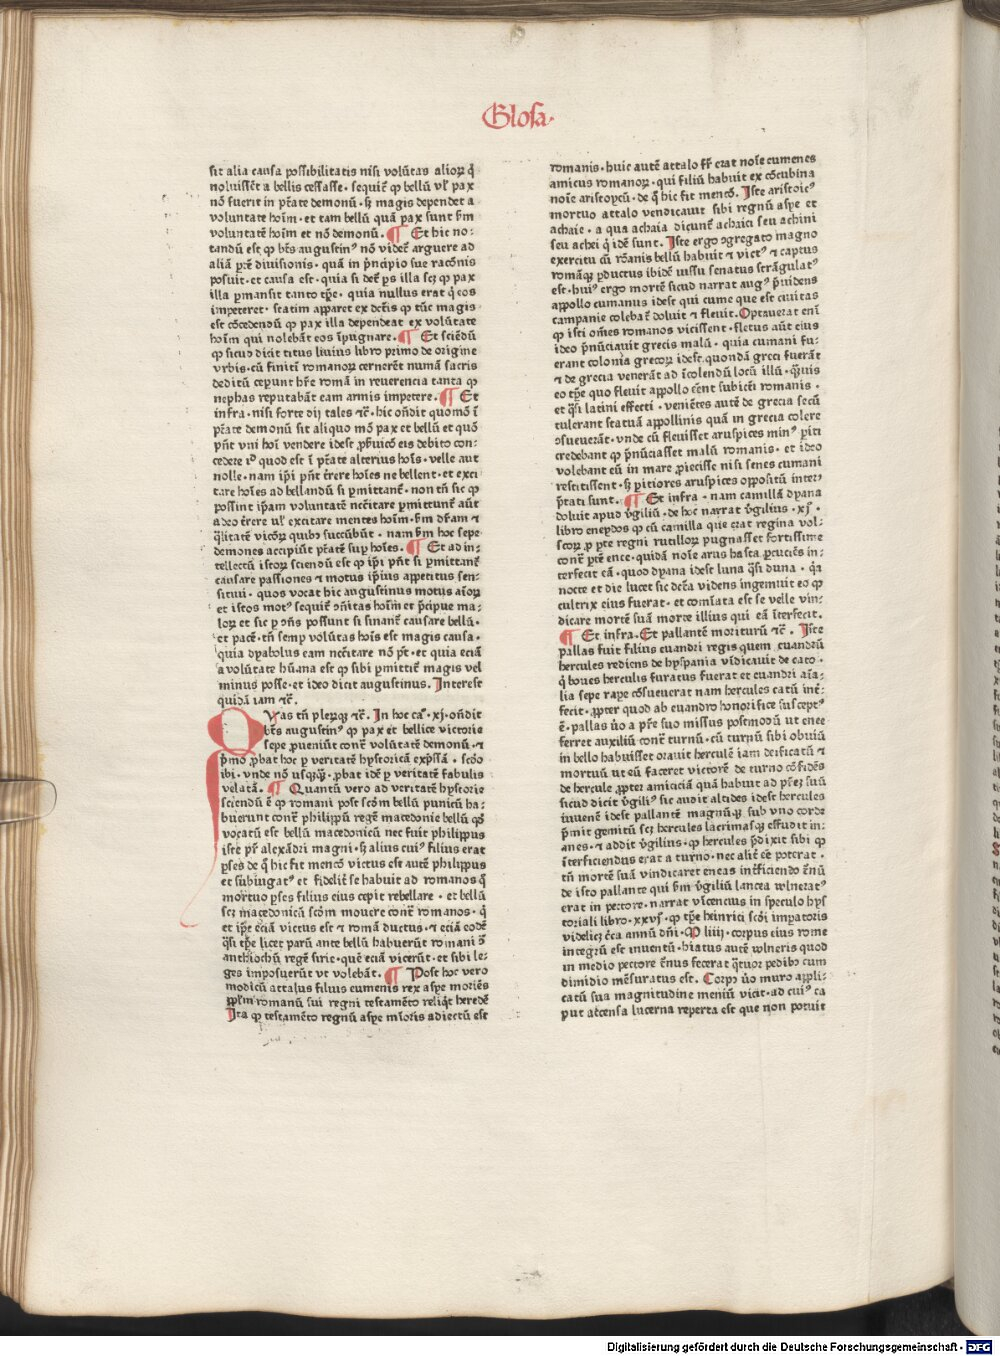 Glosa·
sit alia causa possibilitatis nisi volūtas alioꝝ q̄
noluissēt a bellis cessasse· sequiť ꝙ bellū vľ pax
nō fuerit in ptāte demonū· sꝫ magis dependet a
voluntate hoīm· et tam bellū quā pax sunt ẜm
voluntatē hoīm et nō demonū. ¶ Et hic no-
tandū est ꝙ btūs augustinꝰ nō videť arguere ad
aliā ptē diuisionis· quā in pͥncipio sue racōnis
posuit· et causa est· quia si deť ꝑs illa scꝫ ꝙ pax
illa ꝑmansit tanto tꝑe· quia nullus erat q̄ eos
impeteret· statim apparet ex dctīs ꝙ tūc magis
est cōcedendū ꝙ pax illa dependeat ex volūtate
hoīm qui nolebāt eos īpugnare. ¶ Et sciēdū
ꝙ sicud dicit titus liuius libro primo de origine
vrbis· cū finiti romanoꝝ cernerēt numā sacris
deditū ceꝑunt hr̄e romā in reuerencia tanta ꝙ
nephas reputabāt eam armis impetere. ¶ Et
infra· nisi forte dij tales ꝛč· hic oñdit quomō ī
ptāte demonū sit aliquo mō pax et bellū et quō
pn̄t vni hoī vendere idest ꝓbuicō eis debito con-
cedere id quod est ī ptāte alterius hoīs· velle aut
nolle· nam ipī pn̄t ťrere hoīes ne bellent· et exci
tare hoīes ad bellandū si ꝑmittanť· non tñ sic ꝙ
possint ipam voluntatē nccītare ꝑmittunť aūt
adeo ťrere vľ excitare mentes hoīm· ẜm dr̄am ⁊
q̄litatē vicōꝝ quibꝰ succūbūt· nam ẜm hoc sepe
demones accipiūt ptātē suꝑ hoīes. ¶ Et ad in-
tellectū istoꝝ sciendū est ꝙ ipī pn̄t si ꝑmittanť
causare passiones ⁊ motus ipius appetitus sen-
sitiui· quos vocat hic augustinus motus aīoꝝ
et istos motꝰ sequiť oñitas hoīm et pͥcipue ma-
loꝝ et sic ꝑ oñs possunt si sinanť causare bellū·
et pacē· tñ semꝑ volūtas hoīs est magis causa·
quia dyabolus eam nccītare nō pt̄· et quia eciā
a volūtate hūana est ꝙ sibi ꝑmittiť magis vel
minus posse· et ideo dicit augustinus. Interest
quidā iam ꝛč.
QVas tñ pleꝛꝙꝫ ꝛč. In hoc ca°· xj· oñdit
btūs augustinꝰ ꝙ pax et bellice victorie
sepe ꝓueniūt conť volūtatē demonū· ⁊
pͥmo ꝓbat hoc ꝑ veritatē hystoricā exp̄ssā · scdo
ibi · vnde nō usꝙꝫ· ꝓbat idē ꝑ veritatē fabulis
velatā. ¶ Quantū vero ad veritatē hystorie
sciendū ē ꝙ romani post scdm bellū punicū ha-
buerunt conť philippū regē macedonie bellū qd̄
vocatū est bellū macedonicū nec fuit philippus
iste pr̄ alexādri magni· sꝫ alius cuiꝰ filius erat
ꝑses de q̄ hic fit mencō victus est autē philippus
et subiugatꝰ et fideliť se habuit ad romanos q̄
mortuo ꝑses filius eius cepit rebellare· et bellū
scꝫ macedonicū scdm mouere conť romanos· q̄
et ipe eciā victus est ⁊ romā ductus· ⁊ eciā eodē
q̄si tꝑe licet parū ante bellū habuerūt romani ↄ̄
anthiochū regē sirie· quē eciā vicerūt· et sibi le-
ges imposuerūt vt volebāt. ¶ Post hoc vero
modicū attalus filius eumenis rex asye moriēs
ppľm romanū sui regni testamēto reliq̄t heredē
Ita ꝙ testamēto regnū asye mīoris adiectū est
romanis· huic autē attalo fr̄ erat noīe cumenes
amicus romanoꝝ· qui filiū habuit ex cōcubina
noīe aristoycū· de q̄ hic fit mencō. Iste aristoicꝰ
mortuo attalo vendicauit sibi regnū asye et
achaie· a qua achaia dicunť achaici seu achini
seu achei q̄ idē sunt. Iste ergo ↄgregato magno
exercitu cū rōanis bellū habuit ⁊ victꝰ ⁊ captus
romāꝙ ꝑductus ibidē iussu senatus strāgulatꝰ
est· huiꝰ ergo mortē sicud narrat augꝰ pͥuidens
appollo cumanus idest qui cume que est ciuitas
campanie colebať doluit ⁊ fleuit. Optauerat enī
ꝙ isti om̄es romanos vicissent· fletus aūt eius
ideo pͥnūciauit grecis malū· quia cumani fu-
erant colonia grecoꝝ idest quondā greci fuerāt
⁊ de grecia venerāt ad īcolendū locū illū· q̄uis
eo tꝑe quo fleuit appollo eēnt subiecti romanis·
et q̄si latini effecti· veniētes autē de grecia secū
tulerant statuā appollinis quā in grecia colere
ↄsueuerāt· vnde cū fleuisset aruspices minꝰ ꝑiti
credebant ꝙ pͥnūciasset malū romanis· et ideo
volebant eū in mare ꝓiecisse nisi senes cumani
restitissent· sꝫ ꝑitiores aruspices oppositū inter-
pͥtati sunt. ¶ Et infra· nam camillā dyana
doluit apud v̄giliū· de hoc narrat v̄gilius· xj°·
libro eneydos ꝙ cū camilla que erat regina vol-
scoꝝ ꝓ ꝑte regni rutilloꝝ pugnasset fortissime
conť ptē enee· quidā noīe arus hasta ꝑcuciēs in-
terfecit eā· quod dyana idest luna q̄si duna· q̄a
nocte et die lucet sic dcā videns ingemuit eo ꝙ
cultrix eius fuerat· et comīata est se velle vin-
dicare mortē suā morte illius qui eā īterfecit.
¶ Et infra. Et pallantē moriturū ꝛč. Iste
pallas fuit filius euandri regis quem euandrū
hercules rediens de hyspania vīdicauit de caco·
q̄ boues hercules furatus fuerat et euandri aīa-
lia sepe raꝑe cōsueuerat nam hercules cacū inť-
fecit· ꝓpter quod ab euandro honorifice susceptꝰ
ē· pallas ūo a pr̄e suo missus postmodū ut enee
ferret auxiliū conť turnū· cū turnū sibi obuiū
in bello habuisset orauit herculē iam deificatū ⁊
mortuū ut eū faceret victorē de turno cōfidēs
de hercule ꝓpter amiciciā quā habuit ad pr̄eꝫ suū
sicud dicit v̄giliꝰ sic audit alcides idest hercules
iuuenē idest pallantē magnūꝙꝫ sub vno corde
pͥmit gemitū scꝫ hercules lacrimasꝙꝫ effudit in-
anes· ⁊ addit v̄gilius· ꝙ hercules pͥdixit sibi ꝙ
īterficiendus erat a turno· nec aliť eē poterat·
tñ mortē suā vindicaret eneas inťficiendo ťnū
de isto pallante qui ẜm v̄giliū lancea wlneratꝰ
erat in pectore· narrat vīcencius in speculo hys
toriali libro· xxvj°· ꝙ tꝑe heinrici scdi impatoris
videlicꝫ ćca annū dn̄i· M liiij· corpus eius rome
integrū est inuentū· hiatus autē wlneris quod
in medio pectore ťnus fecerat q̄tuor pedibꝰ cum
dimidio mēsuratus est. Corpꝰ ūo muro appli-
catū sua magnitudine meniū vicit· ad cuiꝰ ca
put atcensa lucerna reperta est que non potuit
Digitalisierung gefördert durch die Deutsche Forschungsgemeinschaft - DFG